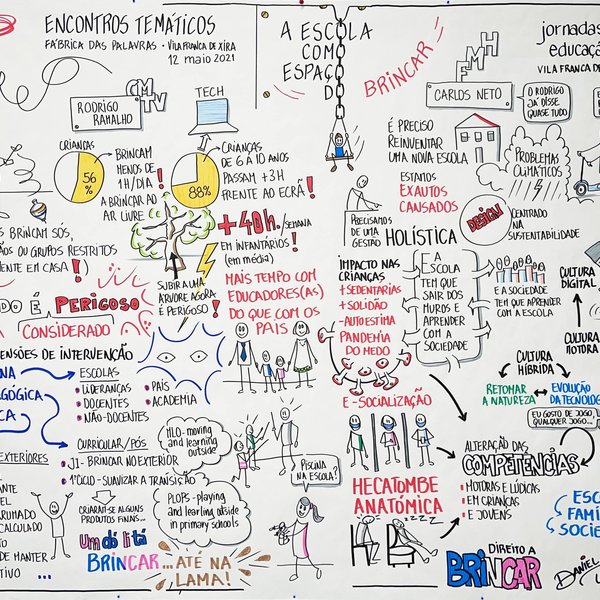 ENCONTROS TEMÁTICOS
FÁBRICA DAS PALAVRAS • VILA FRANCA DE XIRA
12 MAIO 2021
CMTV
RODRIGO
RAMALHO
TECH
CRIANÇAS
56%
BRINCAM
MENOS DE
1H/DIA!
A BRINCAR AO
AR LIVRE
88%
CRIANÇAS
DE 6 A 10 ANOS
PASSAM +3H
FRENTE AO ECRÃ!
S BRINCAM SÓS,
OU GRUPOS RESTRITOS
MENTE EM CASA!)
DO É PERIGOSO
CONSIDERADO
SUBIR A UMA
ÁRVORE AGORA
É PERIGOSO!
+40h./SEMANA
EM INFANTÁRIOS!
(EM MÉDIA)
MAIS TEMPO COM
EDUCADORES(AS)
DO QUE COM OS
PAIS
ENSÕES DE INTERVENÇÃO
NA
AGÓGICA
ICA
ESCOLAS
• LIDERANÇAS
• DOCENTES
• NÃO-DOCENTES
• PAIS
• ACADEMIA
CURRICULAR/PÓS
• JI - BRINCAR NO EXTERIOR
• 1º CICLO - SUAVIZAR A TRANSIÇÃO
EXTERIORES
ANTE
EL
ARUMADO
CALCULADO
TO
DE MANTER
TIVO ...
CRIARAM-SE ALGUNS
PRODUTOS FINAIS...
Um di li tá
BRINCAR ...ATÉ NA
LAMA!
MLO - moving
and learning
outside
PLOPS - playing
and learning outside
in primary schools
PISCINA
NA ESCOLA?
A ESCOLA
COMO
ESPAÇO
D
BRINCAR
FMH
CARLOS NETO
O RODRIGO
JÁ DISSE
QUASE TUDO
jornadas
educaçã
VILA FRANCA DE
É PRECISO
REINVENTAR
UMA NOVA ESCOLA
ESTAMOS
EXAUTOS
CANSADOS
PROBLEMAS
CLIMÁTICOS
PRECISAMOS
DE UMA
GESTÃO
HOLÍSTICA
DESIGN
CENTRADO
NA
SUSTENTABILIDADE
IMPACTO NAS
CRIANÇAS
+ SEDENTARIAS
+ SOLIDÃO
- AUTOESTIMA
PANDEMIA
DO MEDO
E A
ESCOLA
TEM QUE
SAIR DOS
MUROS E
APRENDER
COM A
SOCIEDADE
E A SOCIEDADE
TEM QUE APRENDER
COM A ESCOLA
CULTURA
DIGITAL
CULTURA
MOTORA
CULTURA
HÍBRIDA
RETOMAR
A NATUREZA
EVOLUÇÃO
DA TECNOLOG
EU GOSTO DE JOGO,
QUALQUER JOGO...
E-SOCIALIZAÇÃO
HECATOMBE
ANATÓMICA
ZZZZ
ALTERAÇÃO DAS
COMPETÊNCIAS
• MOTORAS E LÚDICAS
• EM CRIANÇAS
• E JOVENS
ESC
FAMÍ
SOCIE
DIREITO A
BRINCAR
DANIEL